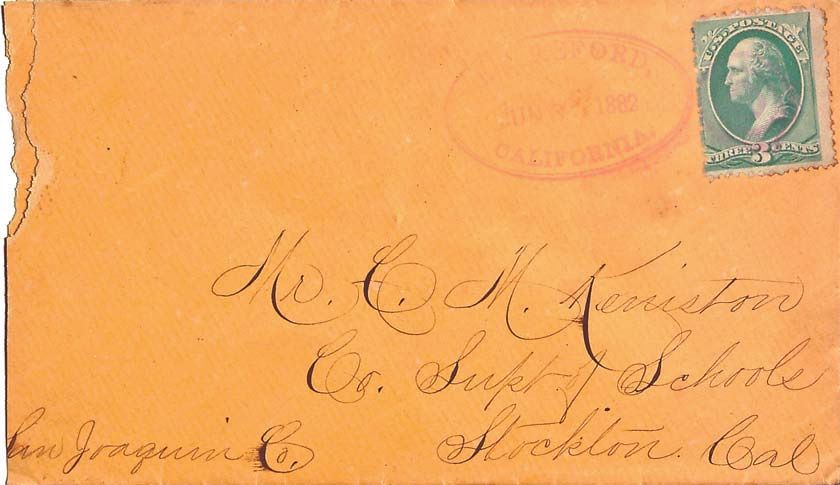 U.S. POSTAGE
THREE 3 CENTS
1882
CALIFORNIA.
Mr. C. M. Keniston
Co. Supt. of Schools
Stockton. Cal
San Joaquin Co.